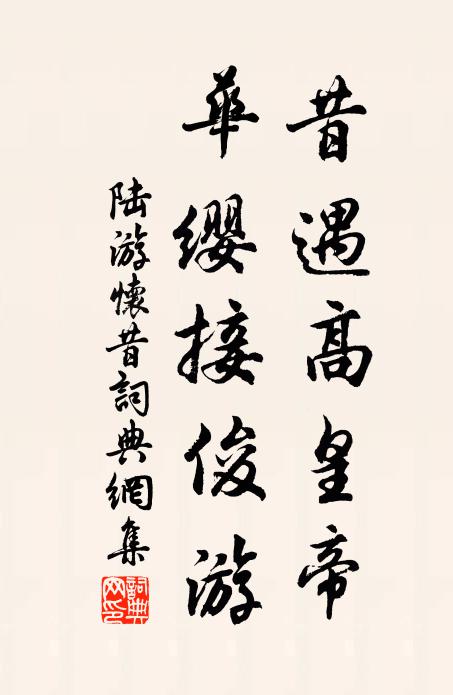 昔遇高皇帝
華纓接俊游
陆游懷昔詞典網集
詞典网印